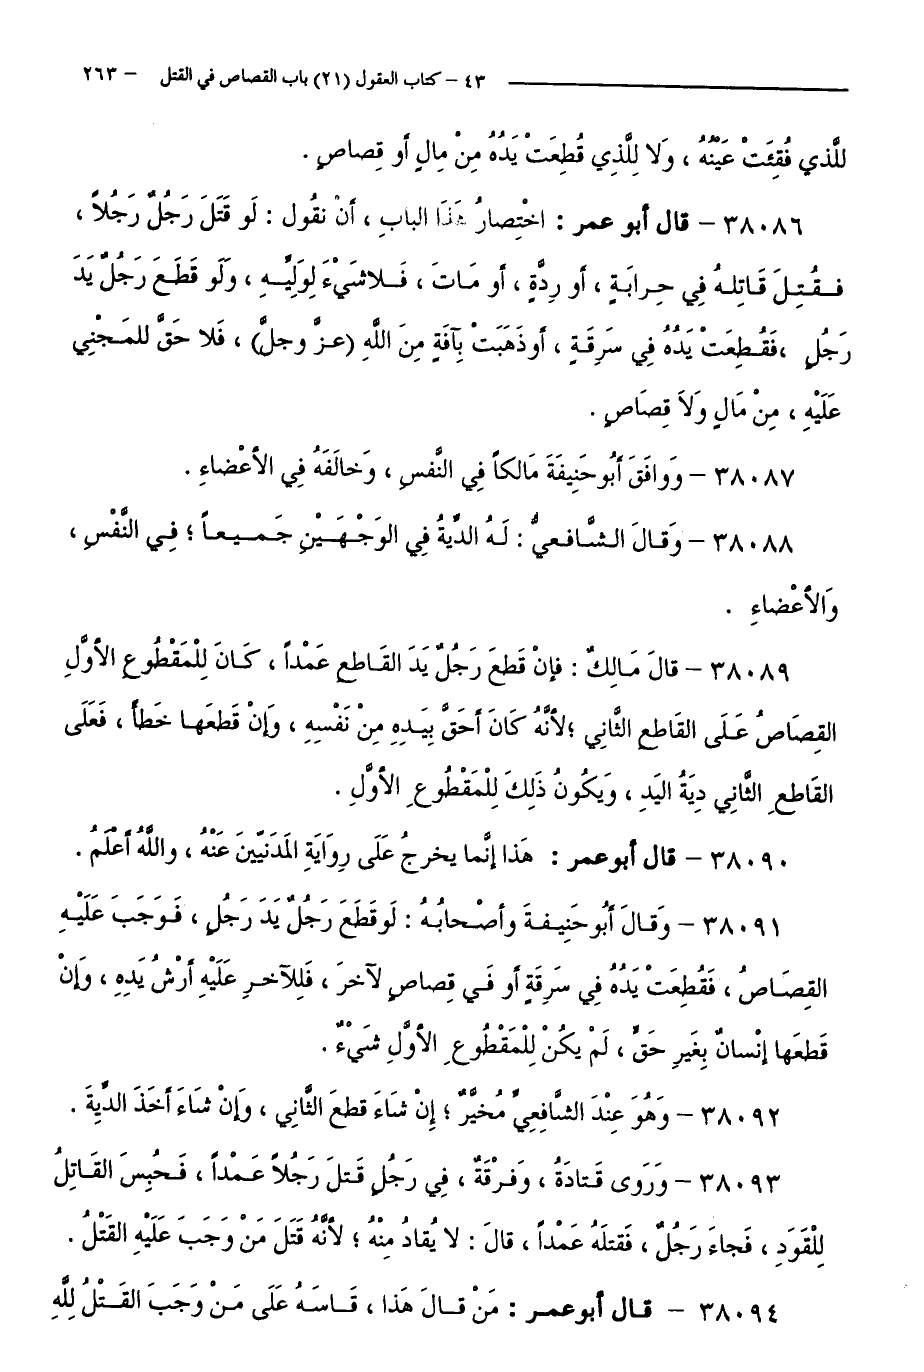 ٤٣ – كتاب العقول (٢١) باب القصاص في القتل – ٢٦٣
للَّذي فُقِئَتْ عَيْنُهُ ، وَلا لِلَّذي قُطِعَتْ يَدُهُ مِنْ مِالٍ أو قِصاصٍ .
٣٨٠٨٦ – قال أبو عمر : اخْتِصارُ هَذَا الباب ، أنْ نقُول : لَو قَتَلَ رَجُلٌ رَجُلاً ،
فـقُـتِـلَ قَـاتِلهُ فِي حِـرابَـةٍ ، أو رِدَّةٍ ، أو مَـاتَ ، فَـلاشَيْءَ لِوَلِيِّـهِ ، وَلَو قَطَعَ رَجُلٌ يَدَ
رَجُلٍ ،فَقُـطِعَتْ يَدُهُ فِي سَرِقَـةٍ ، أوذَهَبَتْ بِآفَةٍ مِنَ اللَّهِ (عـزَّ وجلَّ) ، فَلا حَقَّ للمَـجْنِي
عَلَيْهِ ، مِنْ مَالٍ ولاَ قِصَاصٍ .
٣٨٠٨٧ – وَوافَقَ أَبُو حَنِيفَةَ مَالكاً فِي النَّفسِ ، وَخالَفَهُ فِي الأعْضاءِ .
٣٨٠٨٨ – وَقـالَ الـشَّـافـعيُّ : لَـهُ الدِّيةُ فِي الوَجْـهَـيْنِ جَـمـيـعـاً ؛ فِـي النَّفْسِ ،
وَالأعْضاءِ .
٣٨٠٨٩ – قالَ مَـالِكٌ : فإنْ قَطعَ رَجُلٌ يَدَ القَـاطِعِ عَمْداً ، كَـانَ لِلْمَقْطُوعِ الأوَّلِ
القِصَاصُ عَـلَى القَاطِعِ الثَّانِي ؛لأنَّهُ كَانَ أَحَقَّ بِيَـدِهِ مِنْ نَفْسِهِ ، وَإنْ قَطعَهـا خَطأً ، فَعَلَى
القَاطِعِ الثَّانِي دِيَةُ اليَدِ ، وَيَكُونُ ذَلِكَ لِلْمَقْطُوعِ الأوَّلِ .
٣٨٠٩٠ – قال أبوعمر : هَذا إنَّما يخرجُ عَلَى رِوَايَةِ المَدَنيِّينَ عَنْهُ ، واللَّهُ أعْلَمُ .
٣٨٠٩١ – وَقـالَ أَبُو حَنِيـفـةَ وأصْـحابُـهُ : لَوقَطَعَ رَجُلٌ يَدَ رَجُلٍ ، فَـوَجَبَ عَلَيْـهِ
القِصَـاصُ ، فَقُطعَتْ يَدُهُ فِي سَرِقَةٍ أو فَـي قِصاصٍ لآخرَ ، فَلِلآخـرِ عَلَيْهِ أرْشُ يَدِهِ ، وَإنْ
قَطعَها إنْسانٌ بِغَيرِ حَقٍّ ، لَمْ يكُنْ لِلْمَقْطُوعِ الأوَّلِ شَيْءٌ .
٣٨٠٩٢ – وَهُوَ عِنْدَ الشَّافِعِيِّ مُخيَّرٌ ؛ إنْ شَاءَ قطعَ الثَّانِي ، وَإنْ شاءَ أخَذَ الدِّيةَ .
٣٨٠٩٣ – وَرَوَى قَـتادَةُ ، وَفـرقَةٌ ، فِي رَجُلٍ قَـتلَ رَجُلاً عَـمْداً ، فَـحُبِسَ القَـاتِلُ
لِلْقَوَدِ ، فَجاءَ رَجُلٌ ، فَقتلَهُ عَمْداً ، قالَ : لا يُقادُ مِنْهُ ؛ لأنَّهُ قَتَلَ مَنْ وَجَبَ عَلَيْهِ القَتْلُ .
٣٨٠٩٤ – قـال أبوعمـر : مَنْ قـالَ هَذا ، قَـاسَـهُ عَلَى مَـنْ وَجَبَ القَـتْلُ لِلَّهِ